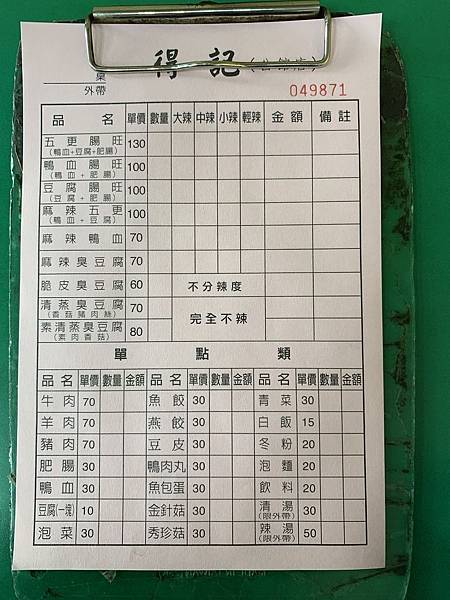 得記
桌
外帶
049871
品名 單價 數量 大辣 中辣 小辣 輕辣 金額 備註
五更腸旺 130
(鴨血+豆腐+肥腸)
鴨血腸旺 100
(鴨血+肥腸)
豆腐腸旺 100
(豆腐+肥腸)
麻辣五更 100
(鴨血+豆腐)
麻辣鴨血 70
麻辣臭豆腐 70
脆皮臭豆腐 60 不分辣度
清蒸臭豆腐 70
(香菇豬肉絲)
完全不辣
素清蒸臭豆腐 80
(素肉香菇)
單點類
品名 單價 數量 金額 品名 單價 數量 金額 品名 單價 數量 金額
牛肉 70 魚餃 30 青菜 30
羊肉 70 燕餃 30 白飯 15
豬肉 70 豆皮 30 冬粉 20
肥腸 30 鴨肉丸 30 泡麵 20
鴨血 30 魚包蛋 30 飲料 20
豆腐(一塊) 10 金針菇 30 清湯(限外帶) 30
泡菜 30 秀珍菇 30 辣湯(限外帶) 50